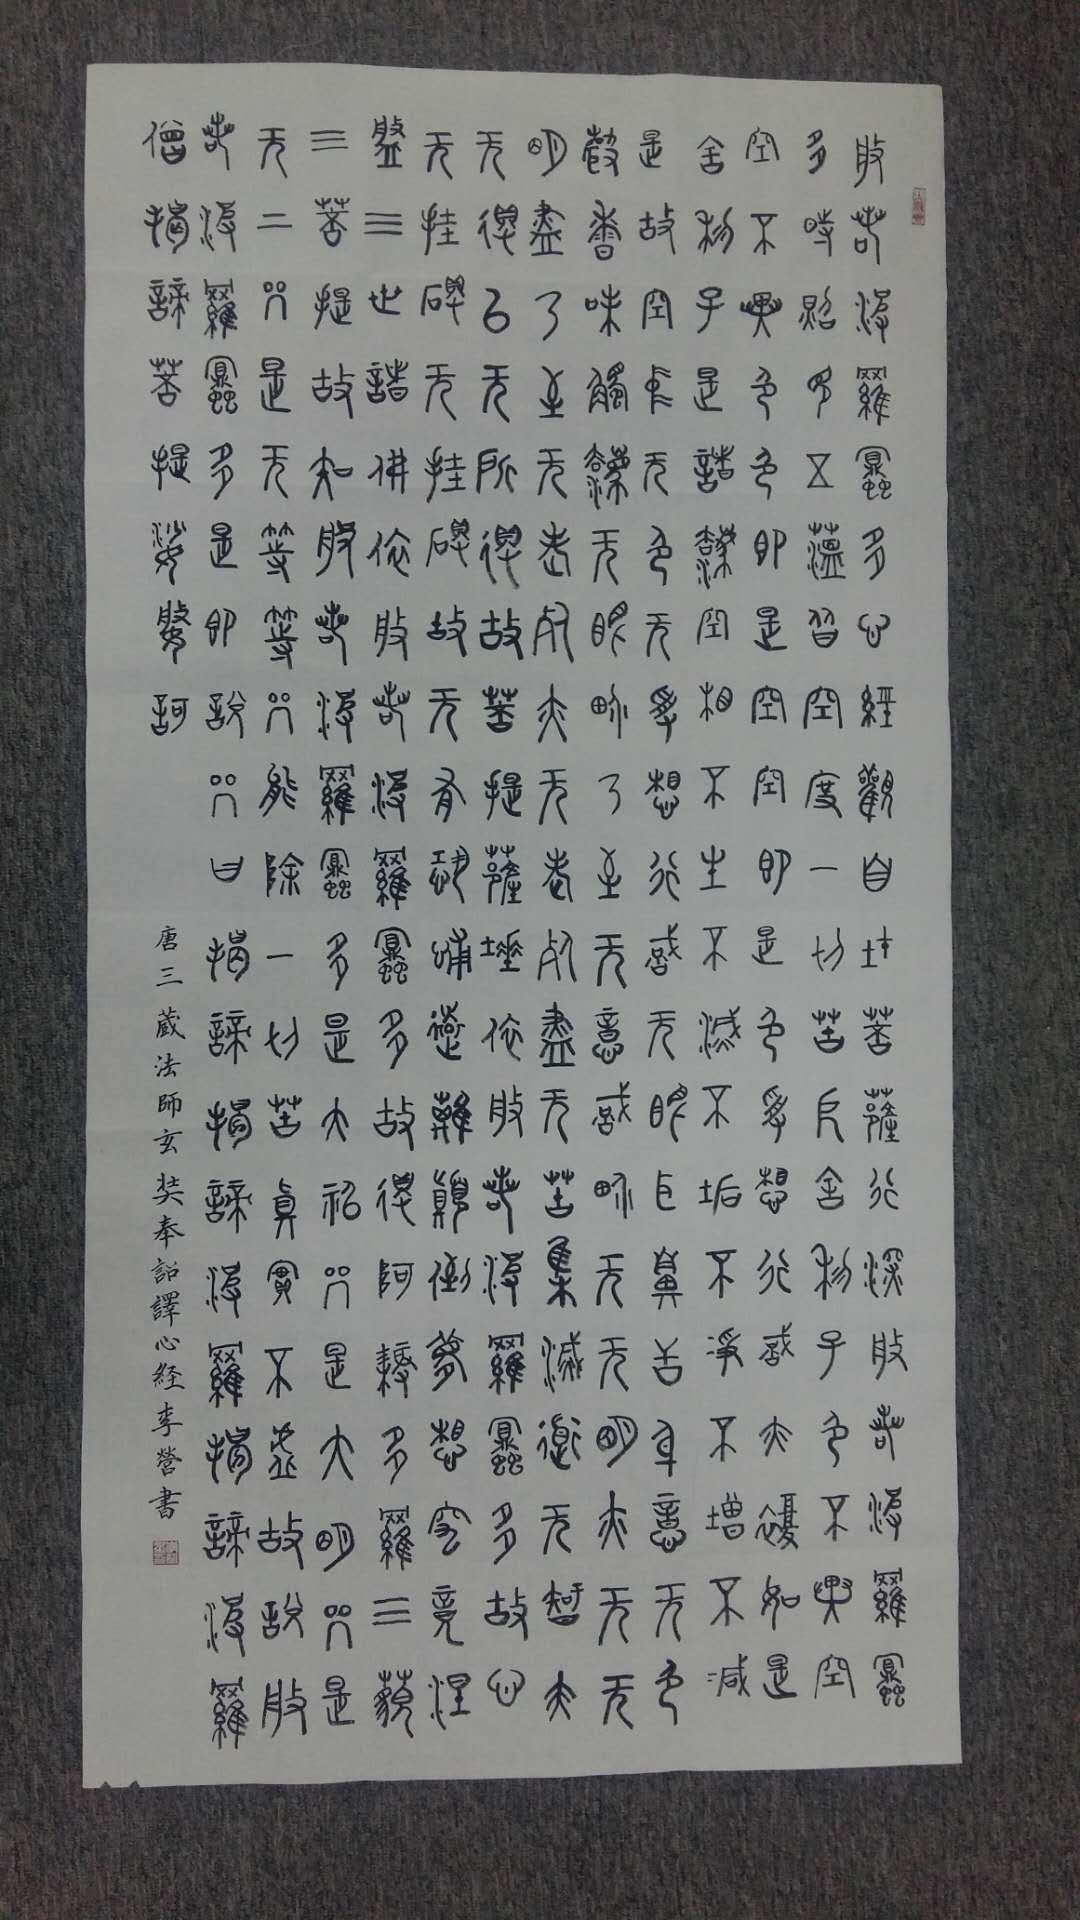 般若波羅蜜多心經觀自在菩薩行深般若波羅蜜
多時照見五蘊皆空度一切苦厄舍利子色不異空
空不異色色即是空空即是色受想行識亦復如是
舍利子是諸法空相不生不滅不垢不淨不增不減
是故空中无色无受想行識无眼耳鼻舌身意无色
聲香味觸法无眼界乃至无意識界无无明亦无无
明盡乃至无老死亦无老死盡无苦集滅道无智亦
无得以无所得故菩提薩埵依般若波羅蜜多故心
无挂礙无挂礙故无有恐怖遠離顛倒夢想究竟涅
盤三世諸佛依般若波羅蜜多故得阿耨多羅三藐
三菩提故知般若波羅蜜多是大神咒是大明咒是
无上咒是无等等咒能除一切苦真實不虛故說般
若波羅蜜多是即說咒曰揭諦揭諦波羅揭諦波羅
僧揭諦菩提娑婆訶
唐三蔵法師玄奘奉詔譯心経李營書